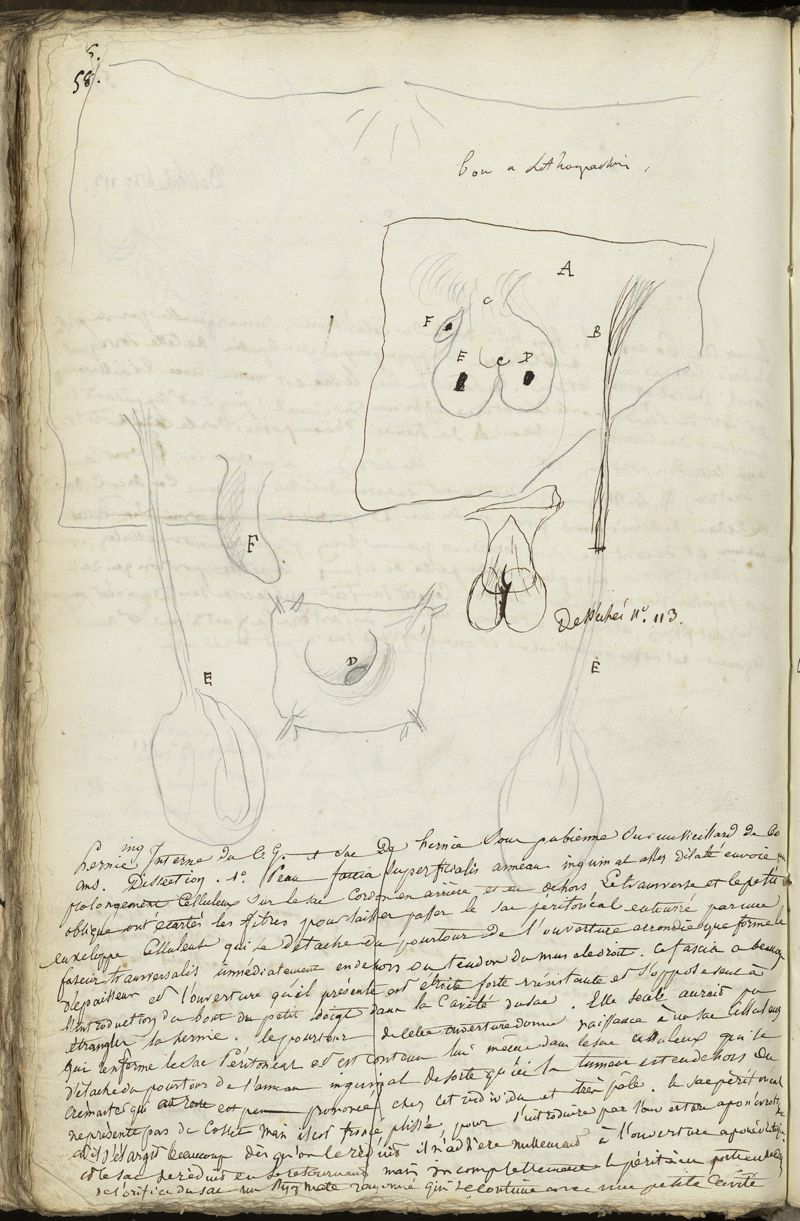 5.
58.
bon a Lithographier.
A
C
B
F
E
D
F
Desséché n°. 113.
D
E
E
hernie ing Interne du C. G. et sac de hernie sous pubienne sur un vieillard de 60
ans. Dissection. 1°. Peau fascia superficialis anneau inguinal assez dilaté envoie un
prolongement Celluleux sur le sac Cordon en arrière et en dehors Le transverse et le petit
oblique ont écartés les fibres pour laisser passer le sac péritonéal entouré par une
enveloppe Celluleuse qui se détache du pourtour de l'ouverture arrondie que forme le
fascia transversalis immédiatement en dehors du tendon du muscle droit. Ce fascia a beaucoup
d'épaisseur et l'ouverture qu'il présente est étroite forte résistante et s'opposent à
l'introduction du bout du petit doigt dans la Cavité du sac. Elle seule aurait pu
étrangler la hernie. le pourtour de cette ouverture donne naissance à un sac celluleux
qui renferme le sac Péritonéal et est contenu lui même dans le sac celluleux qui se
détache du pourtour de l'anneau inguinal de sorte qu'ici la tumeur est en dehors du
Crémaster qui au reste est peu prononcé chez cet individu et très pâle. le sac péritonéal
ne présente pas de Collet mais il est froncé plissé pour s'introduire par l'ouverture aponévrotique
et il s'élargit beaucoup dès qu'on le réduit il n'adhère nullement à l'ouverture aponévrotique
et le sac se réduit en se retournant mais incomplettement le péritoine
de l'orifice du sac un stygmate rayonné qui se continue avec une petite Cavité